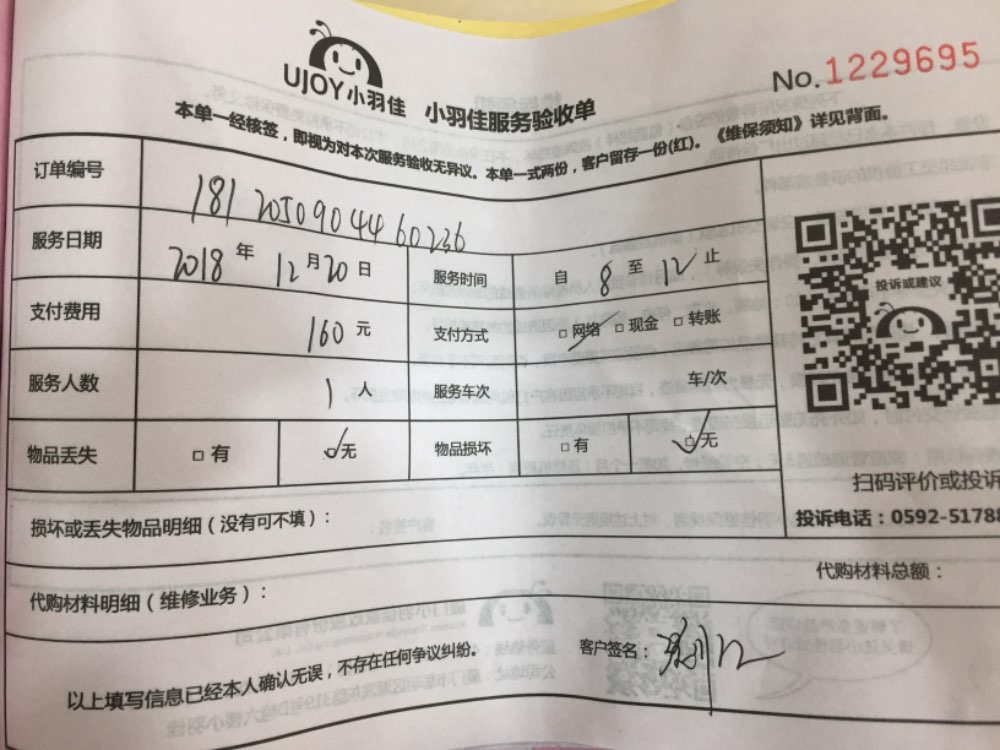 UJOY小羽佳 小羽佳服务验收单
No.1229695
本单一经核签，即视为对本次服务验收无异议。本单一式两份，客户留存一份(红)。《维保须知》详见背面。
订单编号 1812050904460236
服务日期 2018年12月20日 服务时间 自8至12止
支付费用 160元 支付方式 □网络 □现金 □转账
服务人数 1人 服务车次 车/次
物品丢失 □有 □无 物品损坏 □有 □无
投诉或建议
扫码评价或投诉
投诉电话：0592-51788
损坏或丢失物品明细（没有可不填）：
代购材料明细（维修业务）：
代购材料总额：
以上填写信息已经本人确认无误，不存在任何争议纠纷。
客户签名：